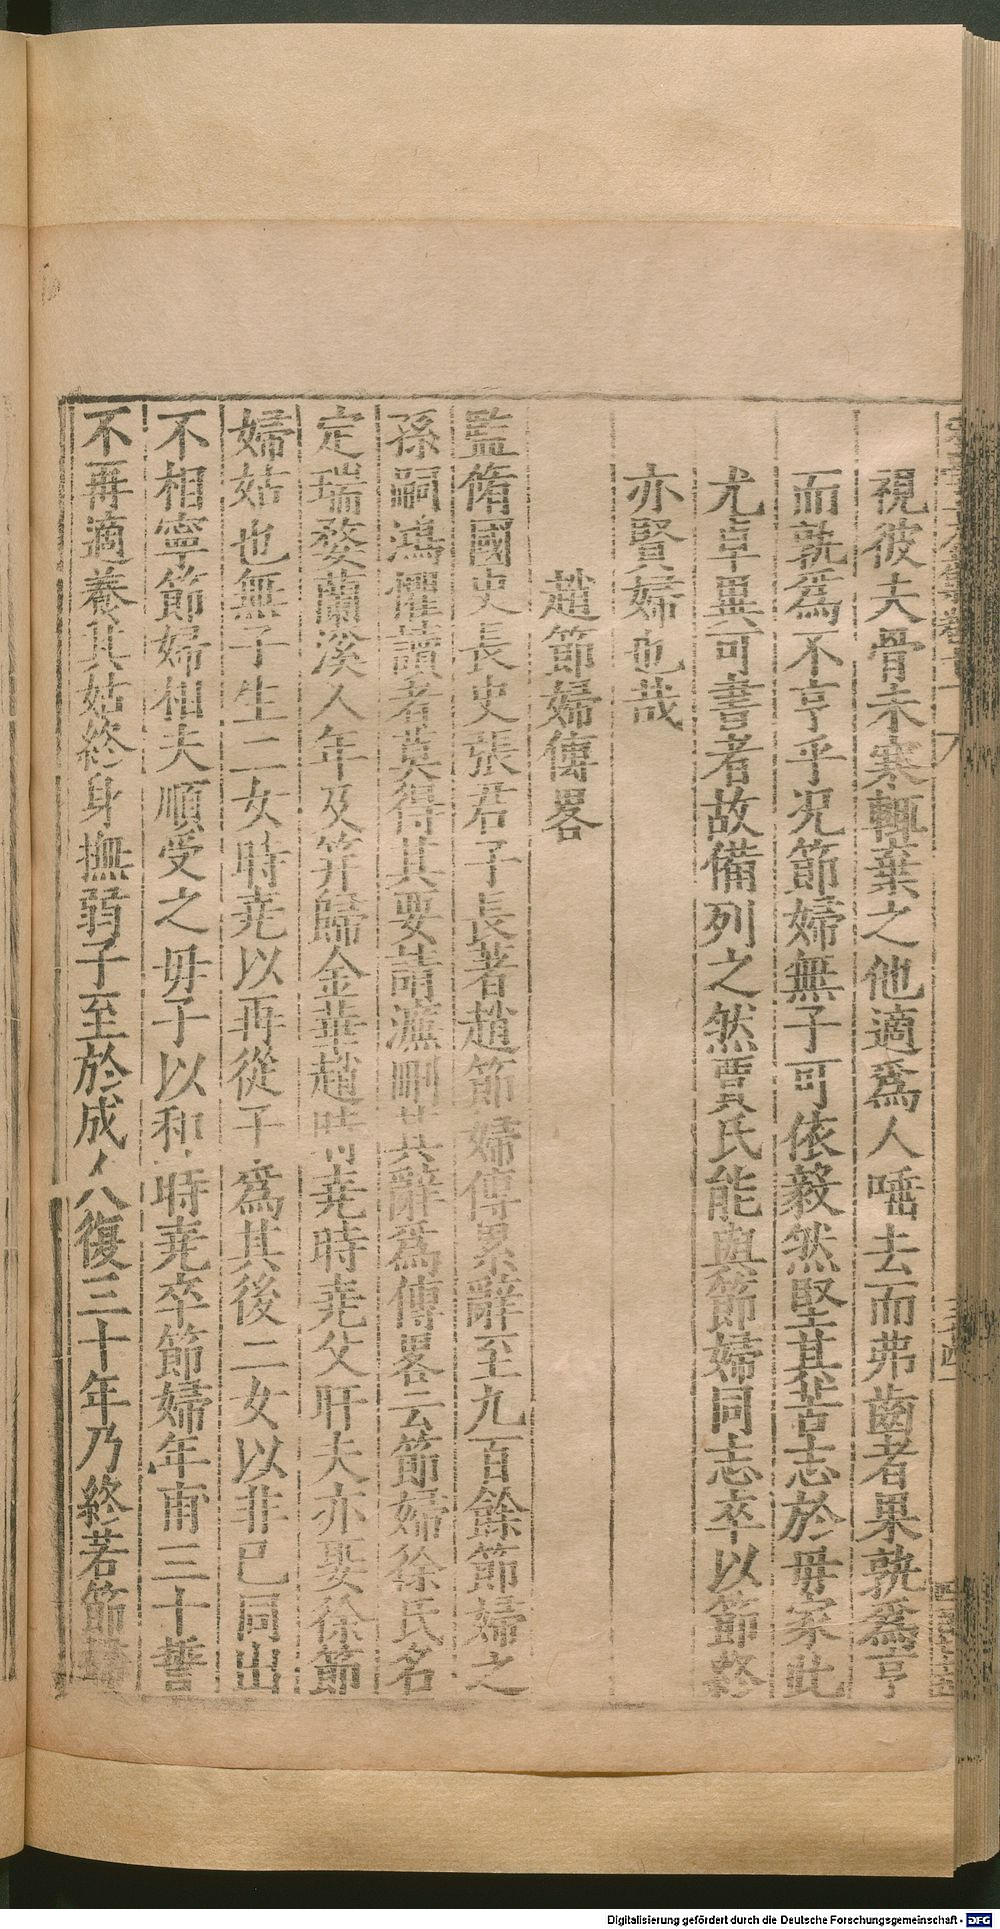 視彼夫骨未寒輒棄之他適爲人唾去而弗齒者果孰爲亨
而孰爲不亨乎况節婦無子可依毅然堅其苦志於毋家此
尤卓異可書者故備列之然賈氏能與節婦同志卒以節終
亦賢婦也哉
趙節婦傳畧
監脩國史長史張君子長著趙節婦傳累辭至九百餘節婦之
孫嗣鴻懼讀者莫得其要請濂刪其辭爲傳畧云節婦徐氏名
定瑞婺蘭溪人年及筓歸金華趙時堯時堯父肝夫亦娶徐節
婦姑也無子生二女時堯以再從子爲其後二女以非已同出
不相寧節婦相夫順受之毋子以和時堯卒節婦年甫三十誓
不再適養其姑終身撫弱子至於成人復三十年乃終若節婦
Digitalisierung gefördert durch die Deutsche Forschungsgemeinschaft - DFG